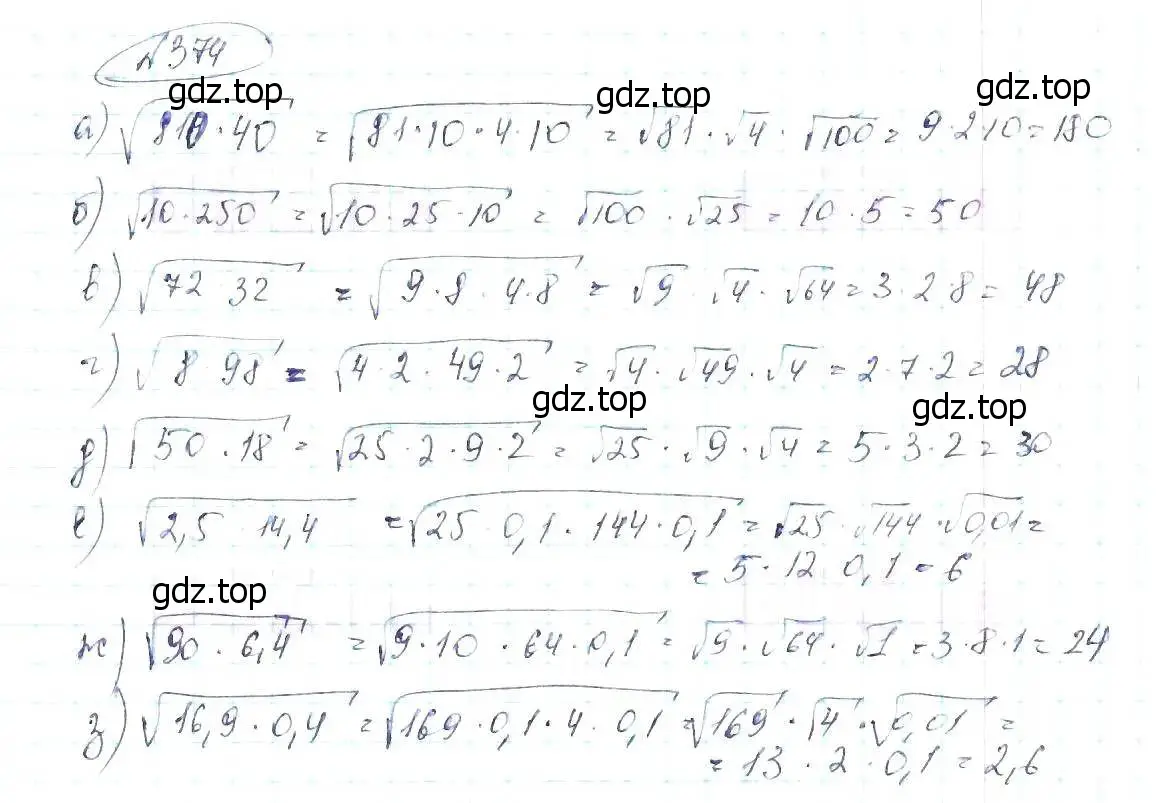 №374
gdz.top
gdz.top
gdz.top
а) √810·40 = √81·10·4·10 = √81·√4·√100 = 9·2·10=180
б) √10·250 = √10·25·10 = √100·√25 = 10·5=50
в) √72 32 = √9·8·4·8 = √9·√4·√64=3·2·8=48
г) √8 98 = √4·2·49·2 = √4·√49·√4 = 2·7·2=28
gdz.top
gdz.top
д) √50·18 = √25·2·9·2 = √25·√9·√4=5·3·2=30
е) √2,5 14,4 = √25 0,1·144·0,1 = √25·√144·√0,01 =
= 5·12 0,1 = 6
gdz.top
ж) √90·6,4 = √9·10·64·0,1 = √9·√64·√1=3·8·1=24
з) √16,9·0,4 = √169·0,1·4·0,1 = √169·√4·√0,01 =
= 13·2·0,1=2,6